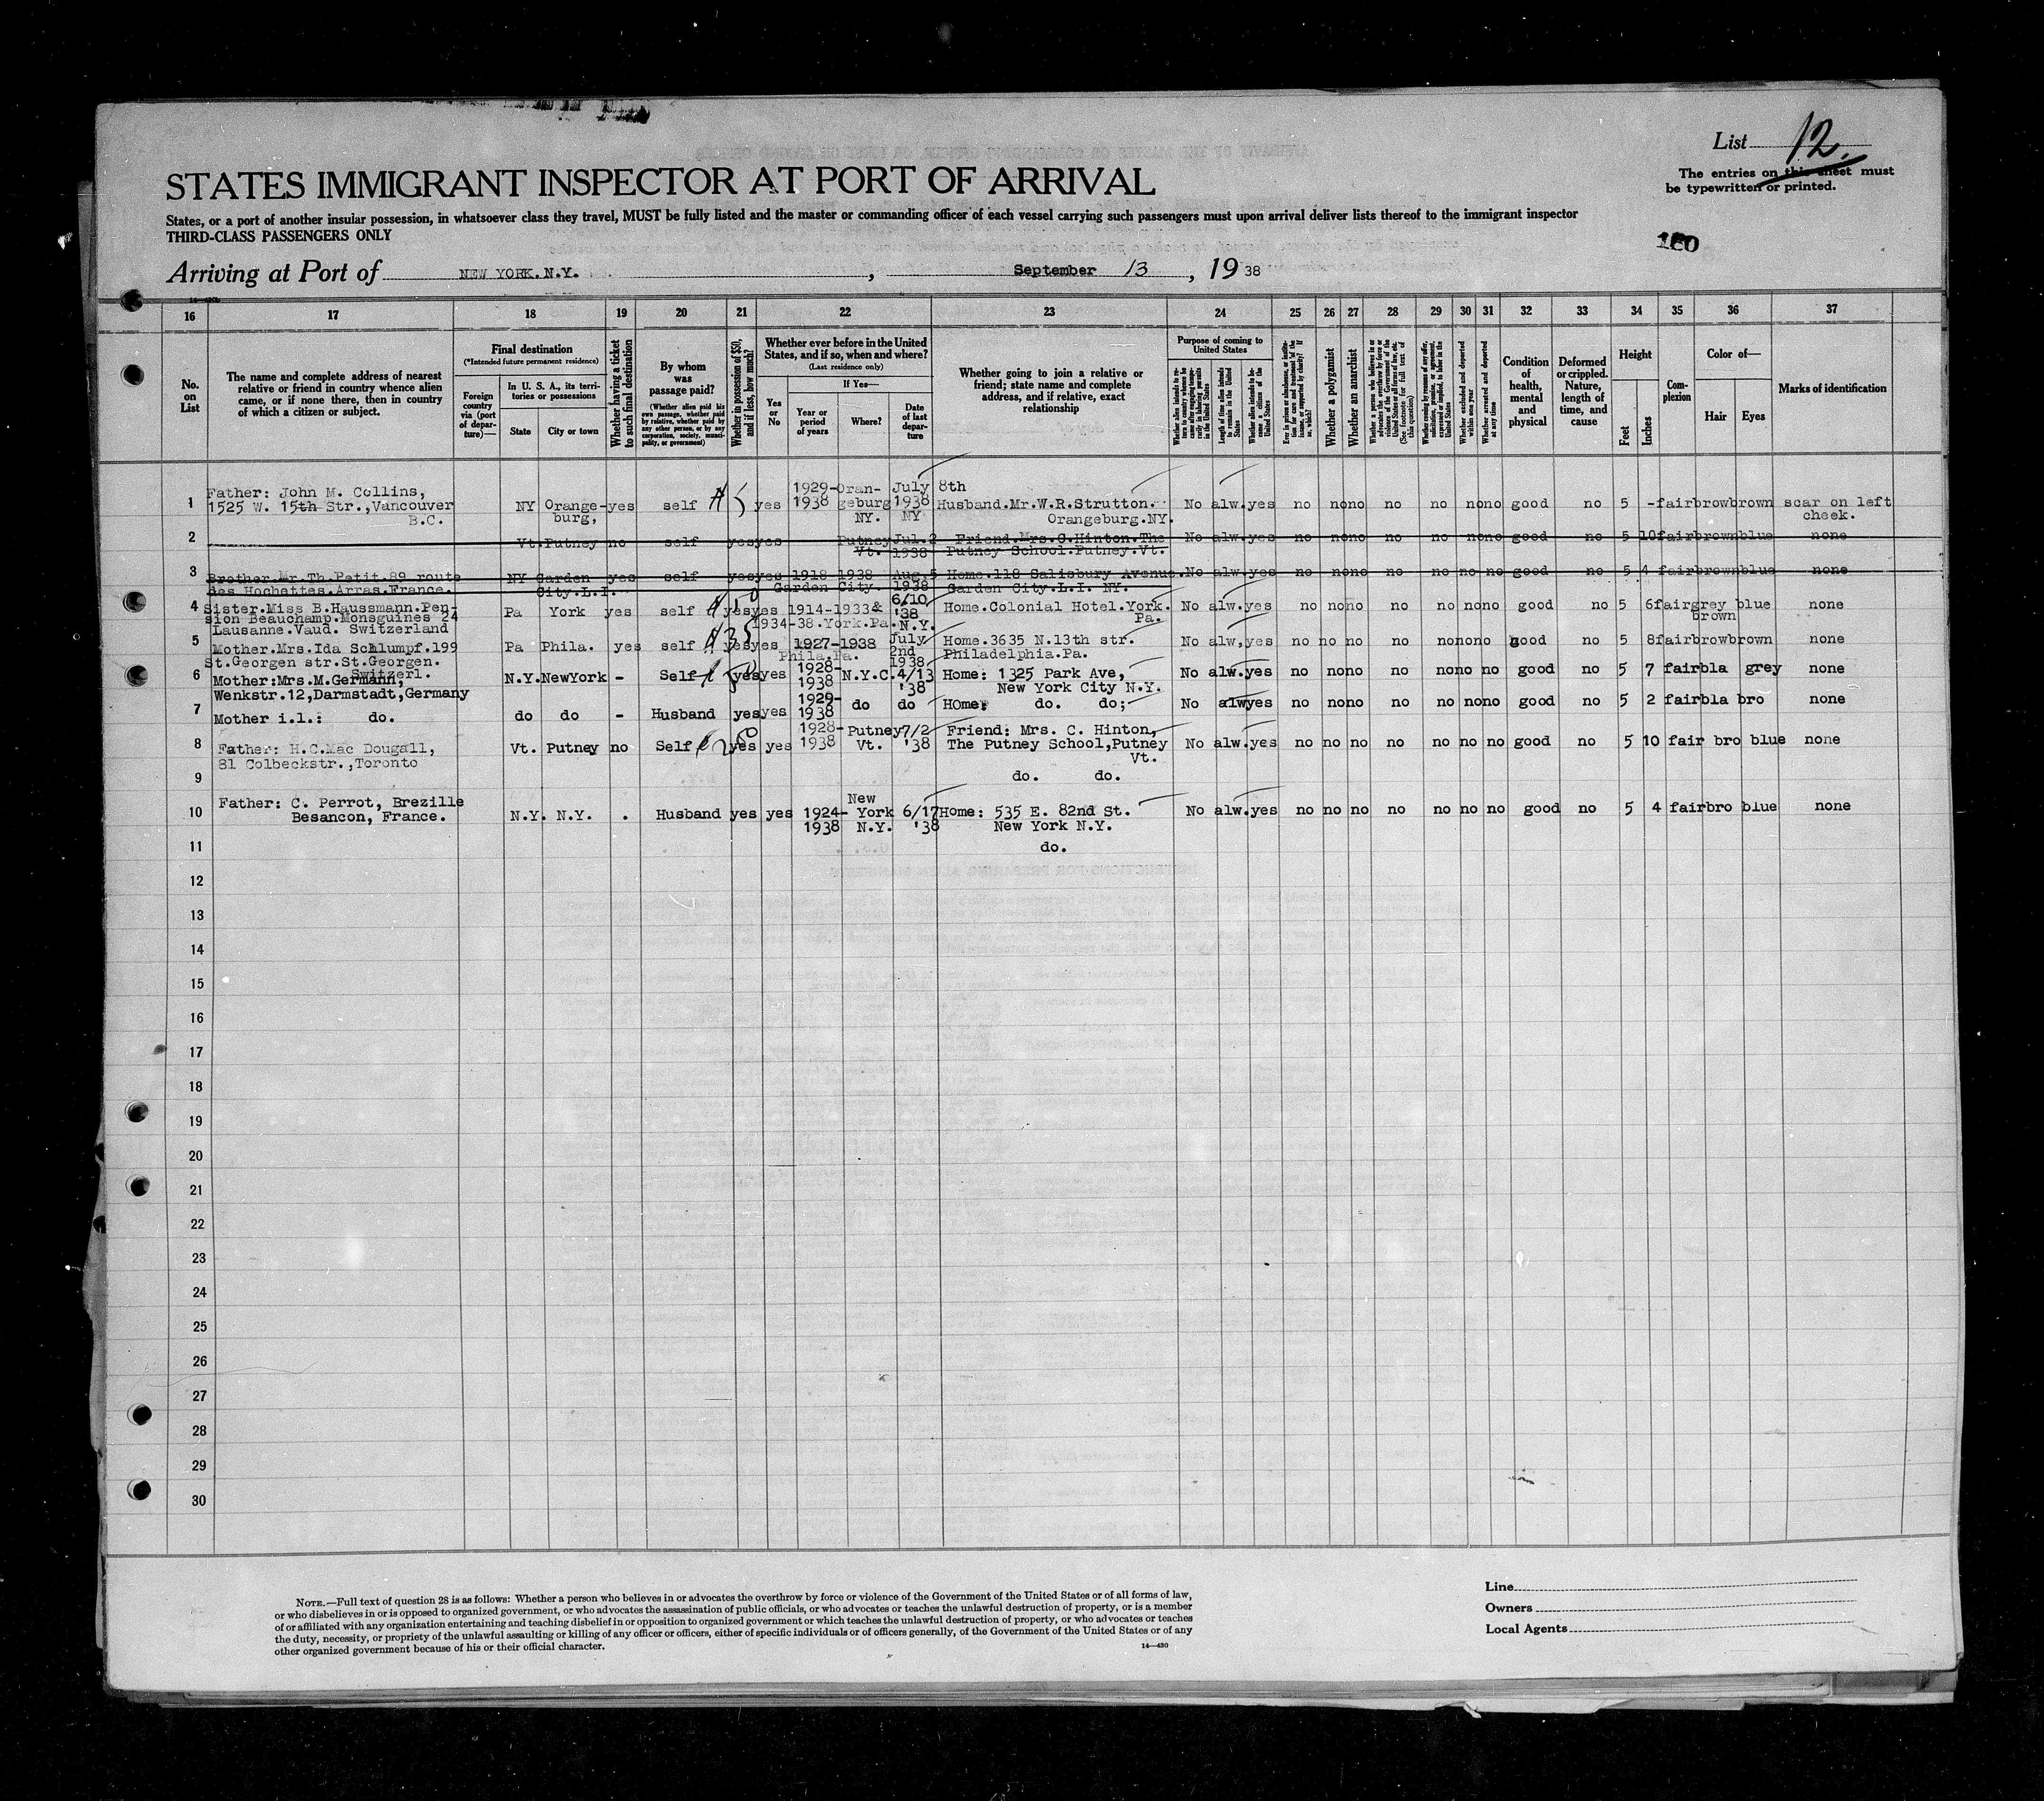 List 12.
The entries on this sheet must
be typewritten or printed.
STATES IMMIGRANT INSPECTOR AT PORT OF ARRIVAL
States, or a port of another insular possession, in whatsoever class they travel, MUST be fully listed and the master or commanding officer of each vessel carrying such passengers must upon arrival deliver lists thereof to the immigrant inspector
THIRD-CLASS PASSENGERS ONLY
Arriving at Port of NEW YORK.N.Y., September 13, 1938
16 17 18 19 20 21 22 23 24 25 26 27 28 29 30 31 32 33 34 35 36 37
No. on List
The name and complete address of nearest relative or friend in country whence alien came, or if none there, then in country of which a citizen or subject.
Final destination
(*Intended future permanent residence)
Foreign country via (port of departure)—
In U. S. A., its territories or possessions
State
City or town
Whether having a ticket to such final destination
By whom was passage paid?
(Whether alien paid his own passage, whether paid by relative, whether paid by any other person, or by any corporation, society, municipality, or government)
Whether in possession of $50, and if less, how much?
Whether ever before in the United States, and if so, when and where?
(Last residence only)
Yes or No
If Yes—
Year or period of years
Where?
Date of last departure
Whether going to join a relative or friend; state name and complete address, and if relative, exact relationship
Purpose of coming to United States
Length of time alien intends to remain in the United States
Whether alien intends to become a citizen of the United States
Whether a polygamist
Whether an anarchist
(See footnote for full text of this question)
Whether excluded and deported within one year
Whether arrested and deported at any time
Condition of health, mental and physical
Deformed or crippled. Nature, length of time, and cause
Height
Feet
Inches
Complexion
Color of—
Hair
Eyes
Marks of identification
1 Father: John M. Collins, 1525 W. 15th Str.,Vancouver B.C. NY Orangeburg, yes self yes 1929-1938 Orangeburg NY. July 8th 1938 NY Husband.Mr.W.R.Strutton. Orangeburg.NY. No alw.yes no no no no no no no good no 5 - fair brow brown scar on left cheek.
2 Vt. Putney no self yes yes Putney Vt. Jul.2 1938 Friend.Mrs.C.Hinton.The Putney School.Putney.Vt. No alw.yes no no no no no no no good no 5 10 fair brown blue none
3 Brother.Mr.Th.Petit.89 route des Hochettes.Arras.France. NY Garden City.L.I. yes self yes yes 1918-1938 Garden City. Aug.5 1938 Home.118 Salisbury Avenue. Garden City.L.I. NY. No alw.yes no no no no no no no good no 5 4 fair brown blue none
4 Sister.Miss B.Haussmann.Pension Beauchamp.Monsguines 24 Lausanne.Vaud. Switzerland Pa York yes self yes yes 1914-1933& 1934-38.York.Pa. 6/10 '38 N.Y. Home.Colonial Hotel.York. Pa. No alw.yes no no no no no no no good no 5 6 fair grey brown blue none
5 Mother.Mrs.Ida Schlumpf.199 St.Georgen str.St.Georgen. Switzerl. Pa Phila. yes self 35 yes yes 1927-1938 Phila.Pa. July 2nd 1938 Home.3635 N.13th str. Philadelphia.Pa. No alw,yes no no no no no no no good no 5 8 fair brow brown none
6 Mother:Mrs.M.Germann, Wenkstr.12,Darmstadt,Germany N.Y. New York - Self 50 yes yes 1928-1938 N.Y.C. 4/13 '38 Home: 1325 Park Ave, New York City N.Y. No alw.yes no no no no no no no good no 5 7 fair bla grey none
7 Mother i.l.: do. do do - Husband yes yes 1929-1938 do do HOme: do. do; No alw yes no no no no no no no good no 5 2 fair bla bro none
8 Father: H.C.Mac Dougall, 81 Colbeckstr.,Toronto Vt. Putney no Self yes yes 1928-1938 Putney Vt. 7/2 '38 Friend: Mrs. C. Hinton, The Putney School,Putney Vt. No alw.yes no no no no no no no good no 5 10 fair bro blue none
9 do. do.
10 Father: C. Perrot, Brezille Besancon, France. N.Y. N.Y. . Husband yes yes 1924-1938 New York N.Y. 6/17 '38 Home: 535 E. 82nd St. New York N.Y. No alw.yes no no no no no no no good no 5 4 fair bro blue none
11 do.
12
13
14
15
16
17
18
19
20
21
22
23
24
25
26
27
28
29
30
NOTE.—Full text of question 28 is as follows: Whether a person who believes in or advocates the overthrow by force or violence of the Government of the United States or of all forms of law,
or who disbelieves in or is opposed to organized government, or who advocates the assassination of public officials, or who advocates or teaches the unlawful destruction of property, or is a member
of or affiliated with any organization entertaining and teaching disbelief in or opposition to organized government or which teaches the unlawful destruction of property, or who advocates or teaches
the duty, necessity, or propriety of the unlawful assaulting or killing of any officer or officers, either of specific individuals or of officers generally, of the Government of the United States or of any
other organized government because of his or their official character.
14—430
Line
Owners
Local Agents